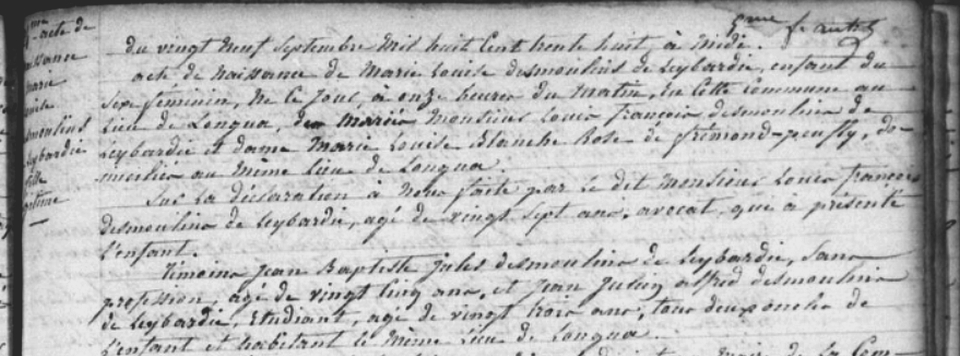 5me feuillet
du vingt neuf septembre mil huit cent trente huit, à midi.
acte de naissance de Marie Louise desmoulins de Leybardie, enfant du
sexe féminin, né ce jour, à onze heures du matin, en cette commune au
lieu de Longua, de mariés Monsieur Louis François desmoulins de
Leybardie et dame Marie Louise Blanche Rose de frimond-peufly, do-
miciliés au même lieu de Longua
Sur la déclaration à nous faite par le dit Monsieur Louis François
desmoulins de Leybardie, agé de vingt sept ans, avocat, qui a présenté
l'enfant.
Témoins Jean Baptiste Jules desmoulins de Leybardie, sans
profession, agé de vingt cinq ans, et jean julien alfred desmoulins
de Leybardie, Etudiant, agé de vingt trois ans, tous deux oncles de
l'enfant et habitant le même lieu de Longua.
me acte de
naissance
marie
Louise
desmoulins
Leybardie
fille
légitime